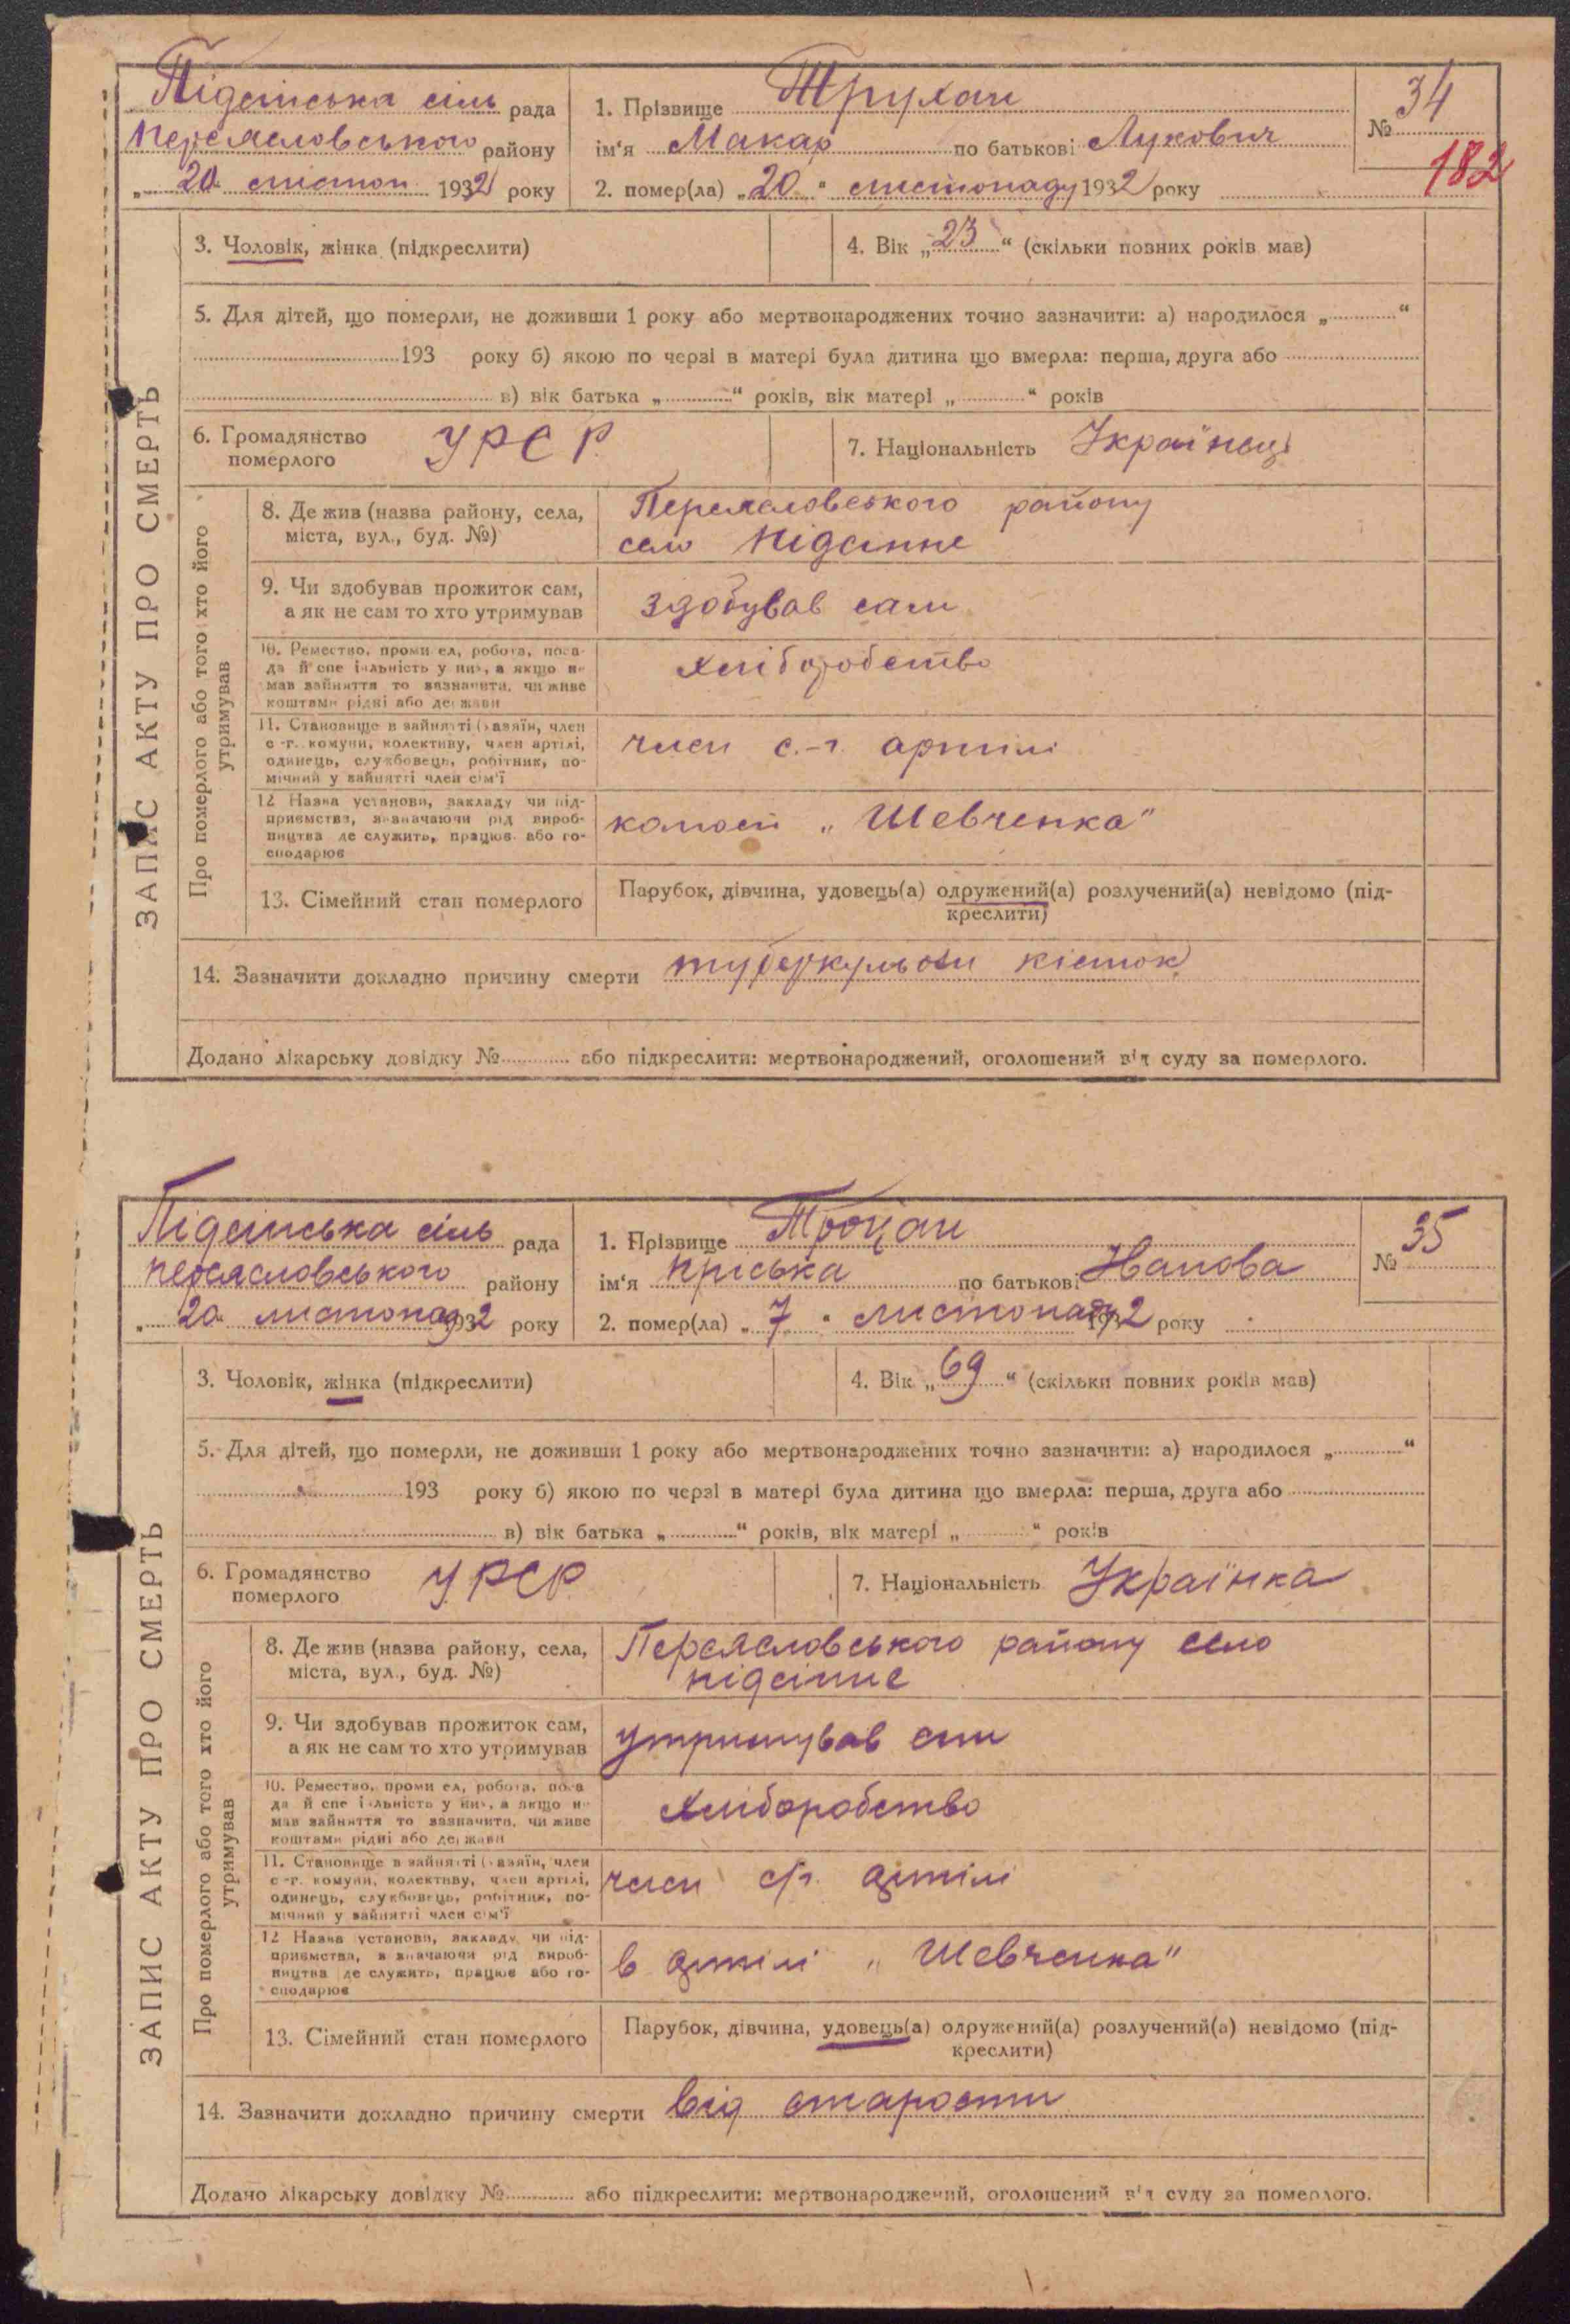 Підсінська сіль рада
Переяславського району
„ 20 листоп 1932 року
1. Прізвище Трухан
ім‘я Макар по батькові Лукович
2. помер(ла) „20“ листопаду 1932 року
№ 34
182
3. Чоловік, жінка (підкреслити)
4. Вік „23“ (скільки повних років мав)
5. Для дітей, що померли, не доживши 1 року або мертвонароджених точно зазначити: а) народилося „ “
193 року б) якою по черзі в матері була дитина що вмерла: перша, друга або
в) вік батька „ “ років, вік матері „ “ років
6. Громадянство
померлого УРСР
7. Національність Українець
ЗАПИС АКТУ ПРО СМЕРТЬ
Про померлого або того хто його
утримував
8. Де жив (назва району, села,
міста, вул., буд. №)
Переяславського району
село Підсінне
9. Чи здобував прожиток сам,
а як не сам то хто утримував
здобував сам
10. Ремество, промисел, робота, поса-
да й спеціяльність у них, а якщо не
мав зайняття то зазначити, чи живе
коштами рідні або держави
хліборобство
11. Становище в зайнятті (хазяїн, член
с.-г. комуни, колективу, член артілі,
одинець, службовець, робітник, по-
мічний у зайнятті член сім‘ї
член с.-г. артілі
12 Назва установи, закладу чи під-
приємства, зазначаючи рід вироб-
ництва де служить, працює або го-
сподарює
колгосп „Шевченка“
13. Сімейний стан померлого
Парубок, дівчина, удовець(а) одружений(а) розлучений(а) невідомо (під-
креслити)
14. Зазначити докладно причину смерти туберкульози кісток
Додано лікарську довідку № або підкреслити: мертвонароджений, оголошений від суду за померлого.
Підсінська сіль рада
Переяславського району
„ 20 листопад 1932 року
1. Прізвище Троцан
ім‘я Пріська по батькові
2. помер(ла) „ 7 “ листопаду 1932 року
№ 35
3. Чоловік, жінка (підкреслити)
4. Вік „69“ (скільки повних років мав)
5. Для дітей, що померли, не доживши 1 року або мертвонароджених точно зазначити: а) народилося „ “
193 року б) якою по черзі в матері була дитина що вмерла: перша, друга або
в) вік батька „ “ років, вік матері „ “ років
6. Громадянство
померлого УРСР
7. Національність Українка
ЗАПИС АКТУ ПРО СМЕРТЬ
Про померлого або того хто його
утримував
8. Де жив (назва району, села,
міста, вул., буд. №)
Переяславського району село
підсінне
9. Чи здобував прожиток сам,
а як не сам то хто утримував
утримував син
10. Ремество, промисел, робота, поса-
да й спеціяльність у них, а якщо не
мав зайняття то зазначити, чи живе
коштами рідні або держави
хліборобство
11. Становище в зайнятті (хазяїн, член
с.-г. комуни, колективу, член артілі,
одинець, службовець, робітник, по-
мічний у зайнятті член сім‘ї
член с/г. артілі
12 Назва установи, закладу чи під-
приємства, зазначаючи рід вироб-
ництва де служить, працює або го-
сподарює
в артілі „Шевченка“
13. Сімейний стан померлого
Парубок, дівчина, удовець(а) одружений(а) розлучений(а) невідомо (під-
креслити)
14. Зазначити докладно причину смерти від старости
Додано лікарську довідку № або підкреслити: мертвонароджений, оголошений від суду за померлого.